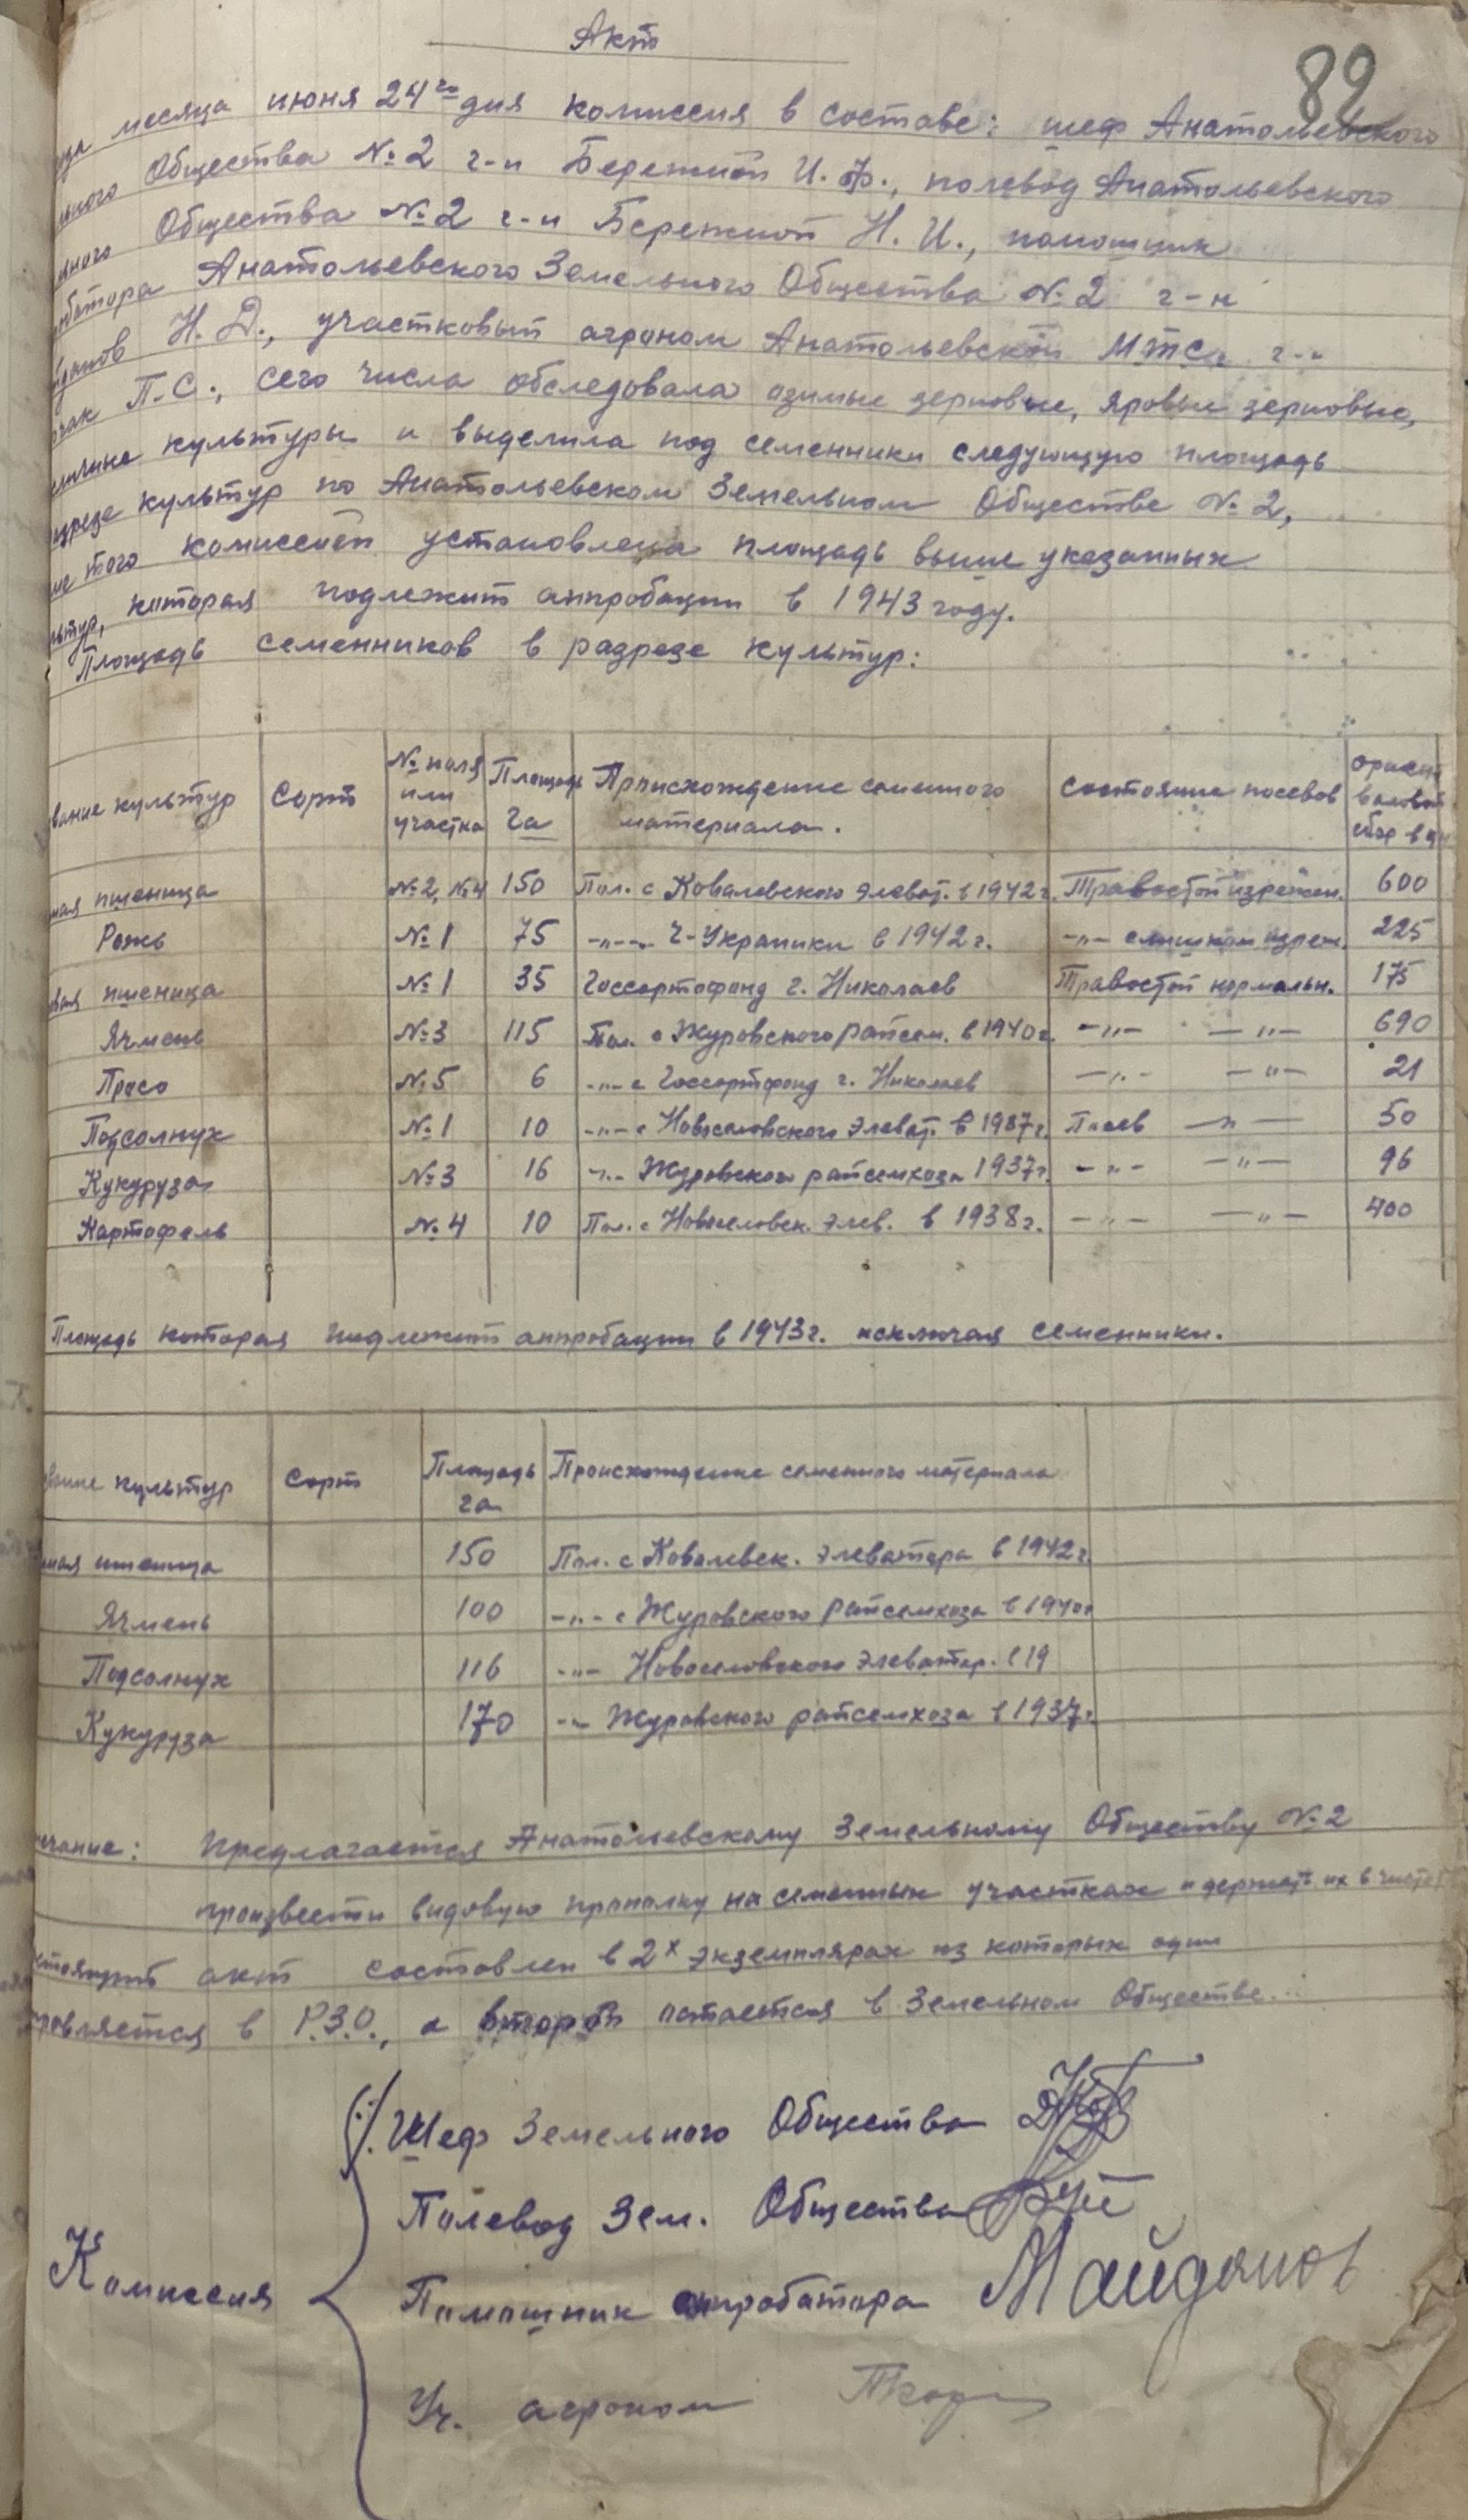 Акт
82
месяца июня 24го дня комиссия в составе: шеф Анатольевского
Общества №2 г-н Бережной И. Ф., полевод Анатольевского
Общества №2 г-н Бережной Н. И., помошник
Анатольевского Земельного Общества №2 г-н
Н. Д., участковый агроном Анатольевской МТС г-н
П.С., сего числа обследовала озимые зерновые, яровые зерновые,
культуры и выделила под семенники следующую площадь
культур по Анатольевском Земельном Обществе №2,
того комиссией установлена площадь выше указанных
которая подлежит аппробации в 1943 году.
Площадь семенников в разрезе культур:
культур | Сорт | № поля или участка | Площадь га | Происхождение семенного материала. | Состояние посевов | сбор в ц
пшеница | №2, №4 | 150 | Пол. с Ковалевского элеват. в 1942 г. | Травостой изрежен. | 600
Рожь | №1 | 75 | -„- Г-Украинки в 1942 г. | -„- слишком изреж. | 225
пшеница | №1 | 35 | Госсортофонд г. Николаев | Травостой нормальн. | 175
Ячмень | №3 | 115 | Пол. с Журовского райсем. в 1940 г. | -„- -„- | 690
Просо | №5 | 6 | -„- с Госсортфонд г. Николаев | -„- -„- | 21
Подсолнух | №1 | 10 | -„- с Новоселовского элеват. в 1937 г. | Посев -„- | 50
Кукуруза | №3 | 16 | -„- Журовского райсемхоза 1937 г. | -„- -„- | 96
Картофель | №4 | 10 | Пол. с Новоселовск. элев. в 1938 г. | -„- -„- | 400
Площадь которая подлежит аппробации в 1943 г. исключая семенники.
культур | Сорт | Площадь га | Происхождение семенного материала
пшеница | 150 | Пол. с Ковалевск. элеватора в 1942 г.
Ячмень | 100 | -„- с Журовского райсемхоза в 1940 г
Подсолнух | 116 | -„- Новоселовского элеватор. в 19
Кукуруза | 170 | -„- Журовского райсемхоза в 1937 г.
Предлагается Анатольевскому Земельному Обществу №2
произвести видовую прополку на семенных участках и держать их в чистоте
акт составлен в 2х экземплярах из которых один
в Р.З.О., а второй остается в Земельном Обществе.
Комиссия
Шеф Земельного Общества
Полевод Зем. Общества
Помошник аппробатора Майданов
Уч. агроном